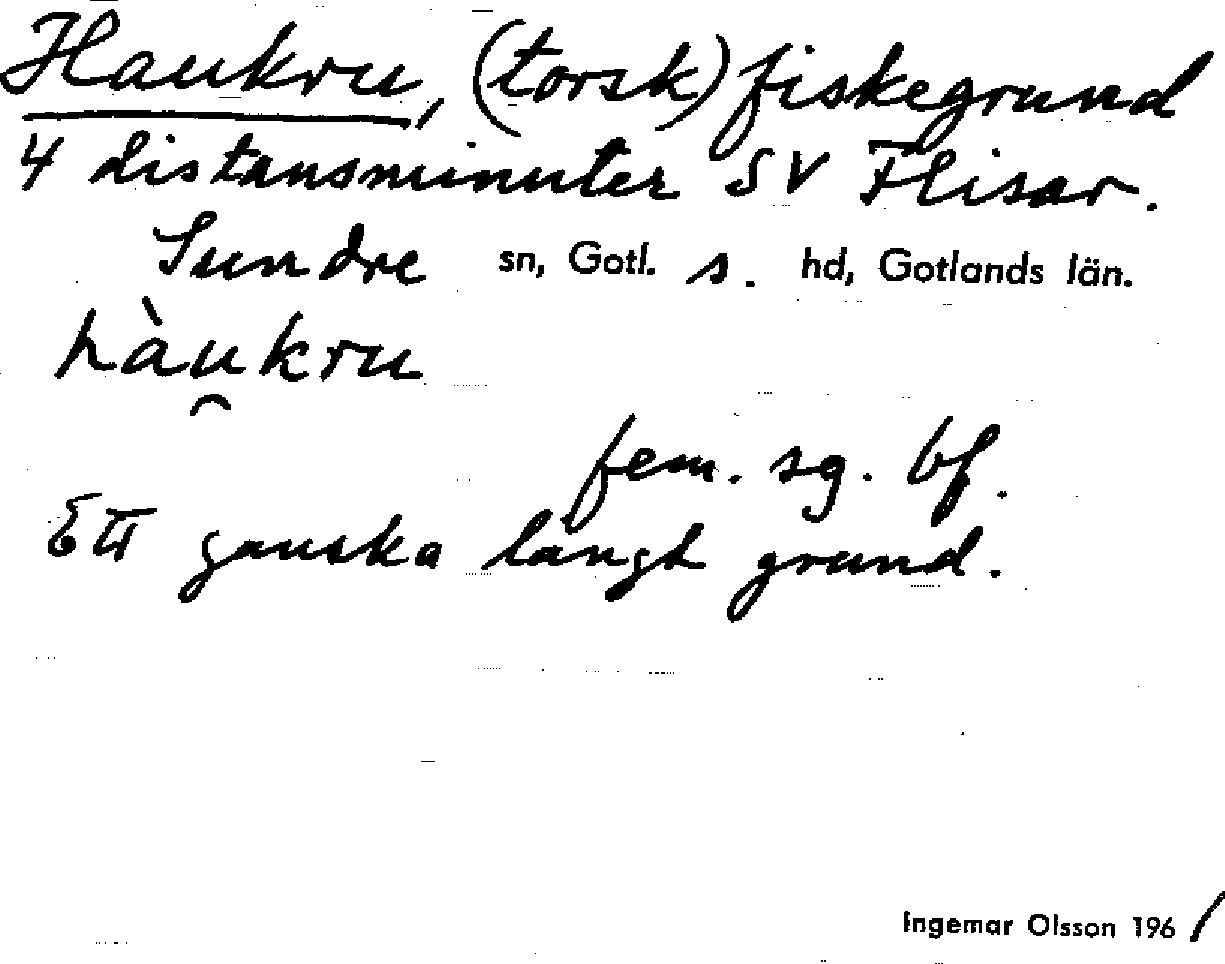 Haukru, (torsk)fiskegrund
4 distansminuter SV Flisar.
Sundre sn, Gotl. s. hd, Gotlands län.
hàu̯kru
fem. sg. bf.
Ett ganska långt grund.
Ingemar Olsson 1961